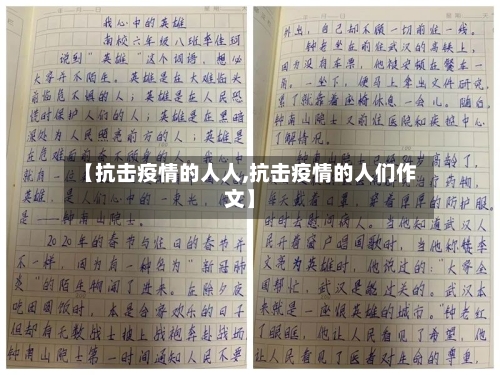 我心中的英雄
南校六年级八班李佳珂
说到“英雄”这个词语，想必
大家并不陌生。英雄是在大难临头
前临危不惧的人；英雄是在人民恐
慌时保护人们的人；英雄是在黑暗
深处为人民照亮前方的人；英雄是
在危难面前
就身
英雄，是人们心中的一束光，他
是——钟南山院士。
2020年的春节与往日的春节并
不一样，因为有一种名为“新冠肺
炎”的陌生物闯了进来。在除夕夜
吃团圆饭时，本是合家欢乐的日子
但却有无数战士披上战袍奔赴战场
钟南山院士第一时间通知人民不要
外出，自己却不顾一切前往一线。
钟老坐在前往武汉的高铁上，
因为没有车票，他被安顿在餐车一
角。一坐下，便马上拿出文件研究，
累了就靠着座椅休息一会儿。随后，
钟南山院士又前往医院和疾控中心
了解情况。
高龄了，
治疗药物，
每天戴着口罩，穿着厚厚的防护服，
时时去慰问病人。当他知道武汉人
民开着窗户唱国歌时，当他称赞李
文亮为英雄时，他说过的：“大家全
国帮忙，武汉是能过关的。武汉本
来就是一座很英雄的城市。”钟老红
了眼眶，他让人民看见了希望，他
让人民看见了医者对生命的尊重，
【抗击疫情的人人,抗击疫情的人们作
文】